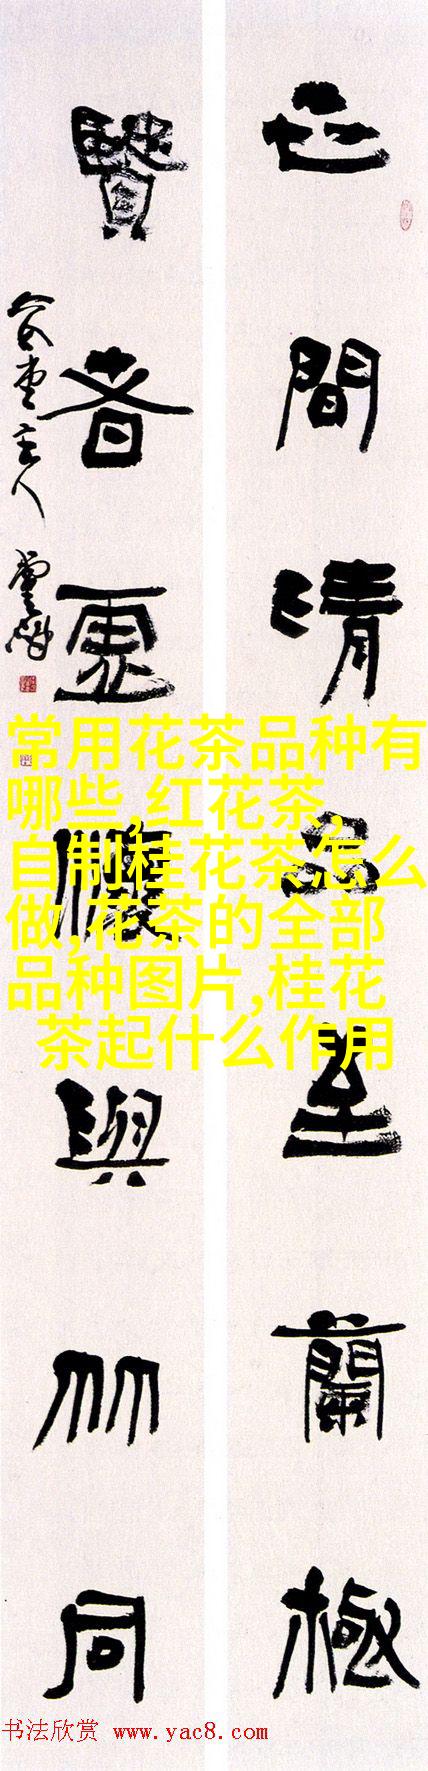 世間清品至蘭極
賢者虛懷與竹同
主人
常用花茶品种有
哪些,红花茶,
自制桂花茶怎么
做,花茶的全部
品种图片,桂花
茶起什么作用
书法欣赏 www.yac8.com